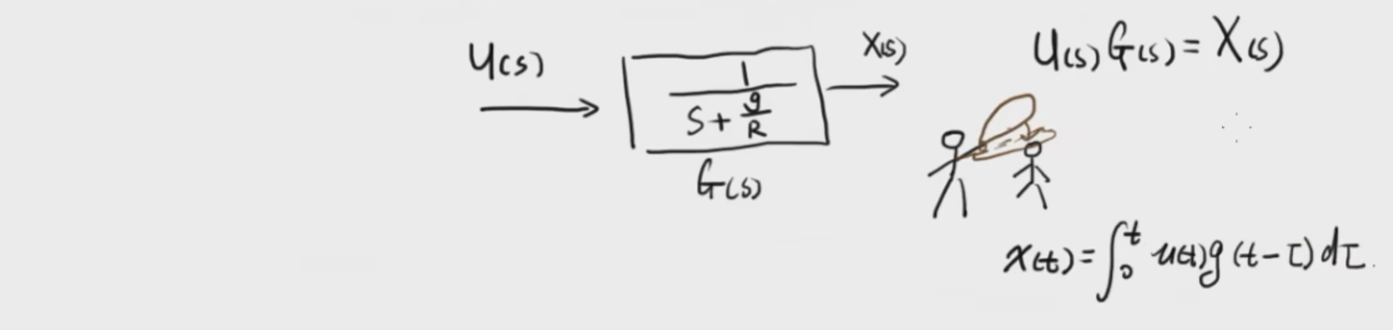 U(s)
1
S + g/R
G(s)
X(s)
U(s) G(s) = X(s)
x(t) = ∫₀ᵗ u(t) g (t - τ) dτ.